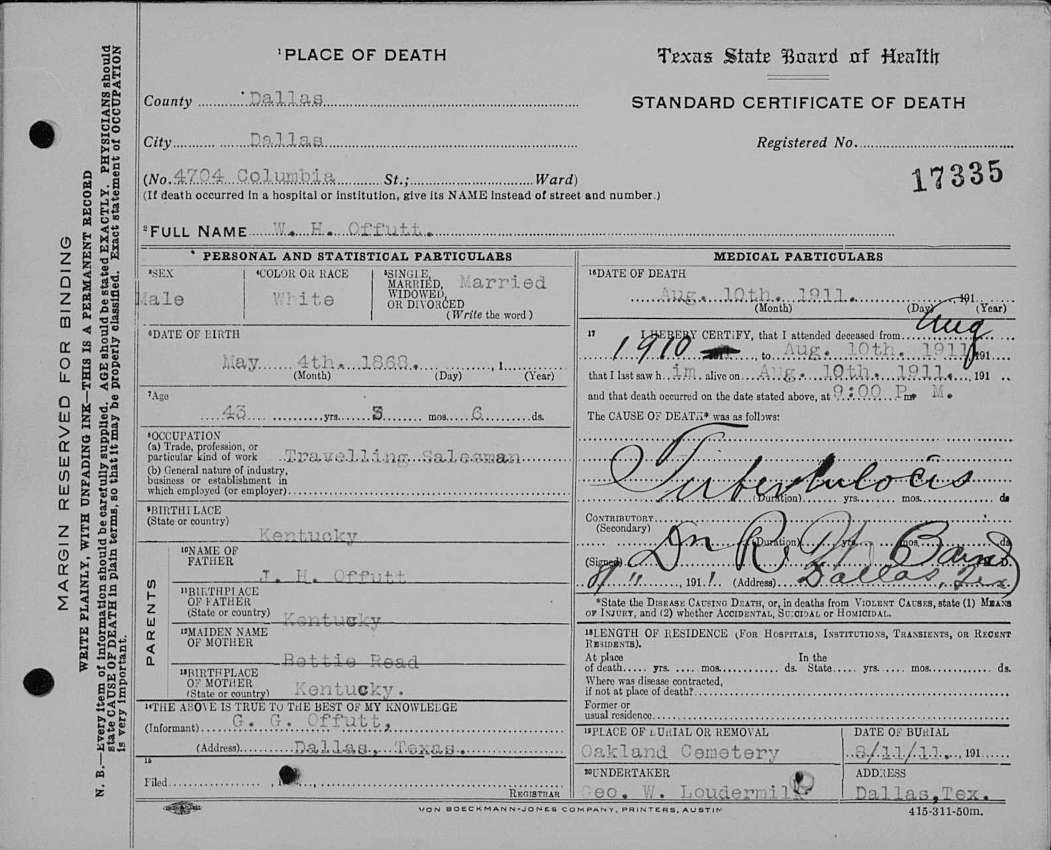 MARGIN RESERVED FOR BINDING
WRITE PLAINLY, WITH UNFADING INK—THIS IS A PERMANENT RECORD
N. B.—Every item of information should be carefully supplied. AGE should be stated EXACTLY. PHYSICIANS should
state CAUSE OF DEATH in plain terms, so that it may be properly classified. Exact statement of OCCUPATION
is very important.
1 PLACE OF DEATH
County Dallas
City Dallas
(No. 4704 Columbia St.; Ward)
(If death occurred in a hospital or institution, give its NAME instead of street and number.)
2 FULL NAME W. H. Offutt.
Texas State Board of Health
STANDARD CERTIFICATE OF DEATH
Registered No.
17335
PERSONAL AND STATISTICAL PARTICULARS
3 SEX
Male
4 COLOR OR RACE
White
5 SINGLE, MARRIED, WIDOWED, OR DIVORCED Married
(Write the word)
6 DATE OF BIRTH
May 4th. 1868. , 1
(Month) (Day) (Year)
7 Age
43 yrs. 3 mos. 6 ds.
8 OCCUPATION
(a) Trade, profession, or
particular kind of work Travelling Salesman
(b) General nature of industry,
business or establishment in
which employed (or employer)
9 BIRTHPLACE
(State or country)
Kentucky
PARENTS
10 NAME OF
FATHER
J. H. Offutt
11 BIRTHPLACE
OF FATHER
(State or country) Kentucky
12 MAIDEN NAME
OF MOTHER
Bettie Read
13 BIRTHPLACE
OF MOTHER
(State or country) Kentucky.
14 THE ABOVE IS TRUE TO THE BEST OF MY KNOWLEDGE
(Informant) G. G. Offutt,
(Address) Dallas, Texas.
15
Filed
REGISTRAR
MEDICAL PARTICULARS
16 DATE OF DEATH
Aug. 10th. 1911. , 191
(Month) (Day) (Year)
17 I HEREBY CERTIFY, that I attended deceased from Aug
1910 , to Aug. 10th. 1911, 191
that I last saw h im. alive on Aug. 10th. 1911. , 191
and that death occurred on the date stated above, at 9:00 P. M.
The CAUSE OF DEATH* was as follows:
Tuberculocis
(Duration) yrs. mos. ds
CONTRIBUTORY
(Secondary)
(Duration) yrs. mos. ds
(Signed) Dr R.
8/11, 1911. (Address) Dallas, Tex
*State the DISEASE CAUSING DEATH, or, in deaths from VIOLENT CAUSES, state (1) MEANS
OF INJURY, and (2) whether ACCIDENTAL, SUICIDAL or HOMICIDAL.
18 LENGTH OF RESIDENCE (FOR HOSPITALS, INSTITUTIONS, TRANSIENTS, OR RECENT
RESIDENTS).
At place In the
of death yrs. mos. ds. State yrs. mos. ds.
Where was disease contracted,
if not at place of death?
Former or
usual residence
19 PLACE OF BURIAL OR REMOVAL
Oakland Cemetery
DATE OF BURIAL
8/11/11. , 191
20 UNDERTAKER
Geo. W. Loudermilk
ADDRESS
Dallas, Tex.
VON BOECKMANN-JONES COMPANY, PRINTERS, AUSTIN
415-311-50m.